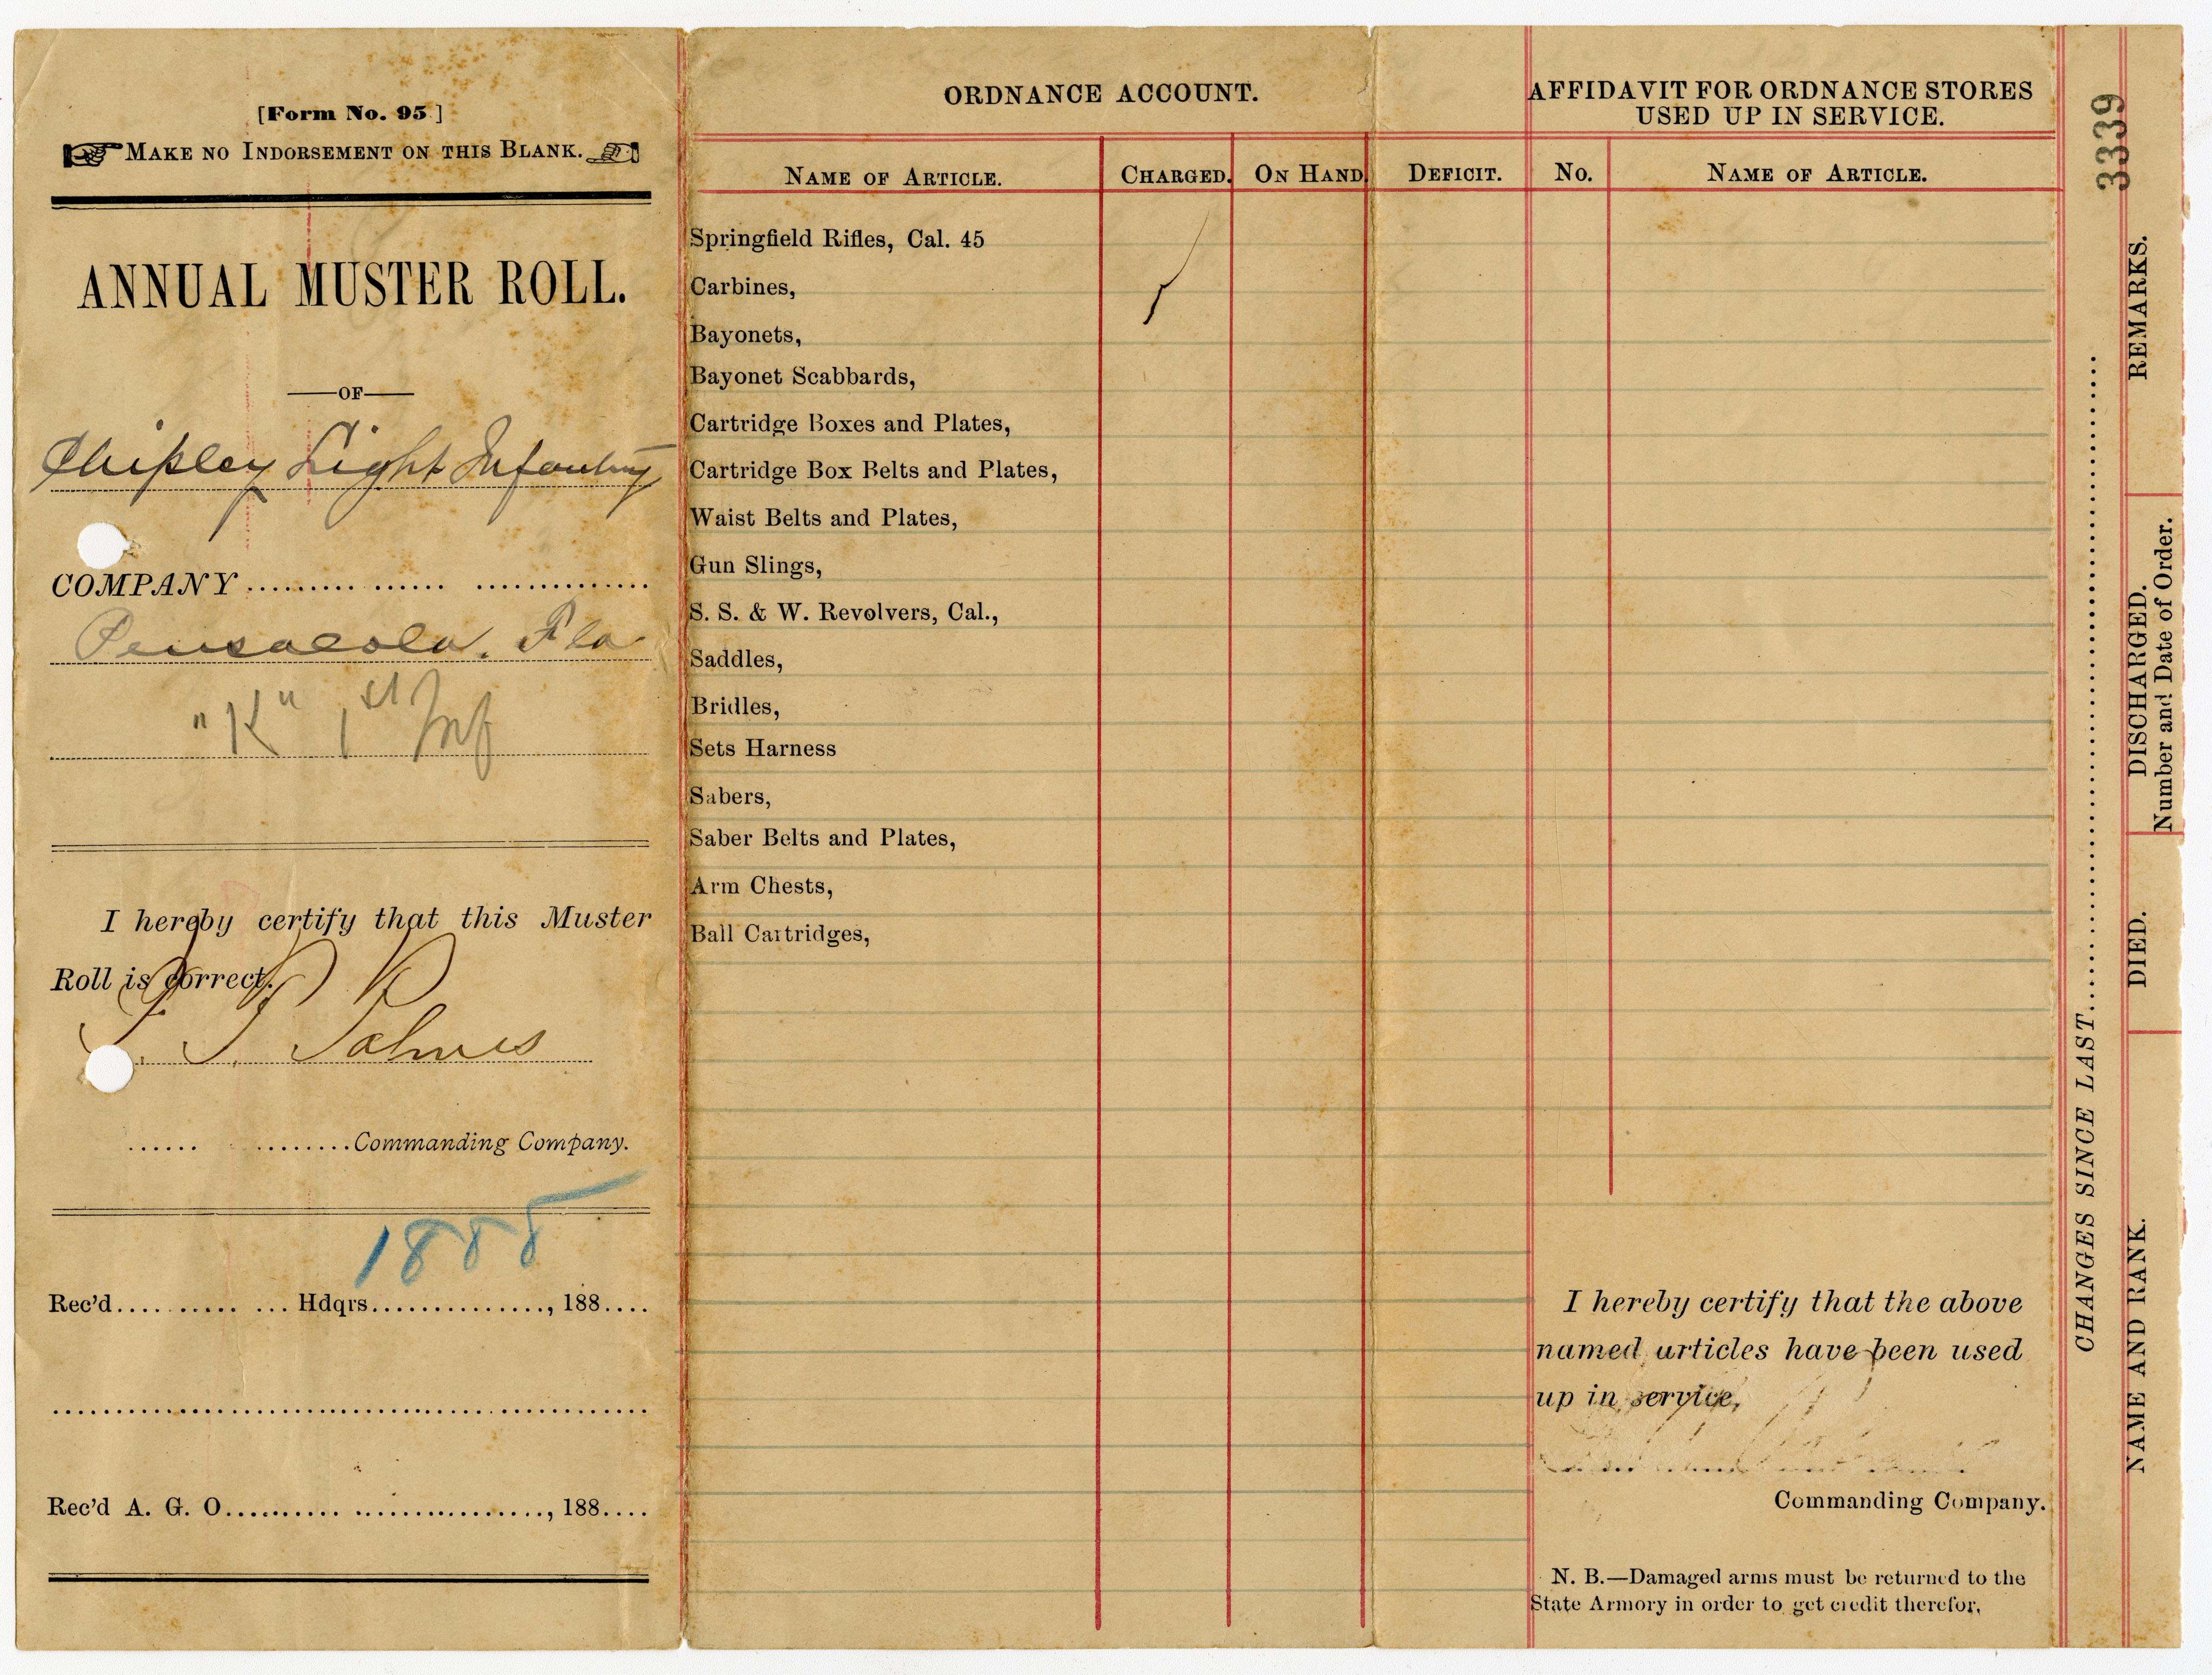 [Form No. 95]
MAKE NO INDORSEMENT ON THIS BLANK.
ANNUAL MUSTER ROLL.
—OF—
Chipley Light Infantry
COMPANY
Pensacola, Fla
"K" 1st Inf
I hereby certify that this Muster
Roll is correct.
Palmes
Commanding Company.
1888
Rec'd.... Hdqrs...., 188....
Rec'd A. G. O...., 188....
ORDNANCE ACCOUNT.
NAME OF ARTICLE. CHARGED. ON HAND DEFICIT.
Springfield Rifles, Cal. 45
Carbines,
Bayonets,
Bayonet Scabbards,
Cartridge Boxes and Plates,
Cartridge Box Belts and Plates,
Waist Belts and Plates,
Gun Slings,
S. S. & W. Revolvers, Cal.,
Saddles,
Bridles,
Sets Harness
Sabers,
Saber Belts and Plates,
Arm Chests,
Ball Cartridges,
AFFIDAVIT FOR ORDNANCE STORES
USED UP IN SERVICE.
No. NAME OF ARTICLE.
I hereby certify that the above
named articles have been used
up in service,
Commanding Company.
N. B.—Damaged arms must be returned to the
State Armory in order to get credit therefor,
3339
CHANGES SINCE LAST
NAME AND RANK.
DIED.
DISCHARGED.
Number and Date of Order.
REMARKS.